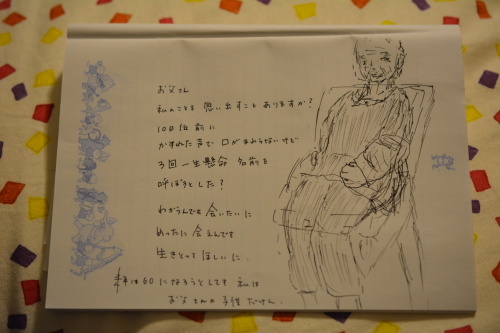 お父さん
私のことを思い出すことありますか?
100日位前に
かすれた声で口がまわらないけど
3回一生懸命名前を
呼ぼうとした?
わがうんでも会いたいに
めったに会えんです
生きとってほしいに.
年は60になろうとしても私は
お父さんの子供だけん.